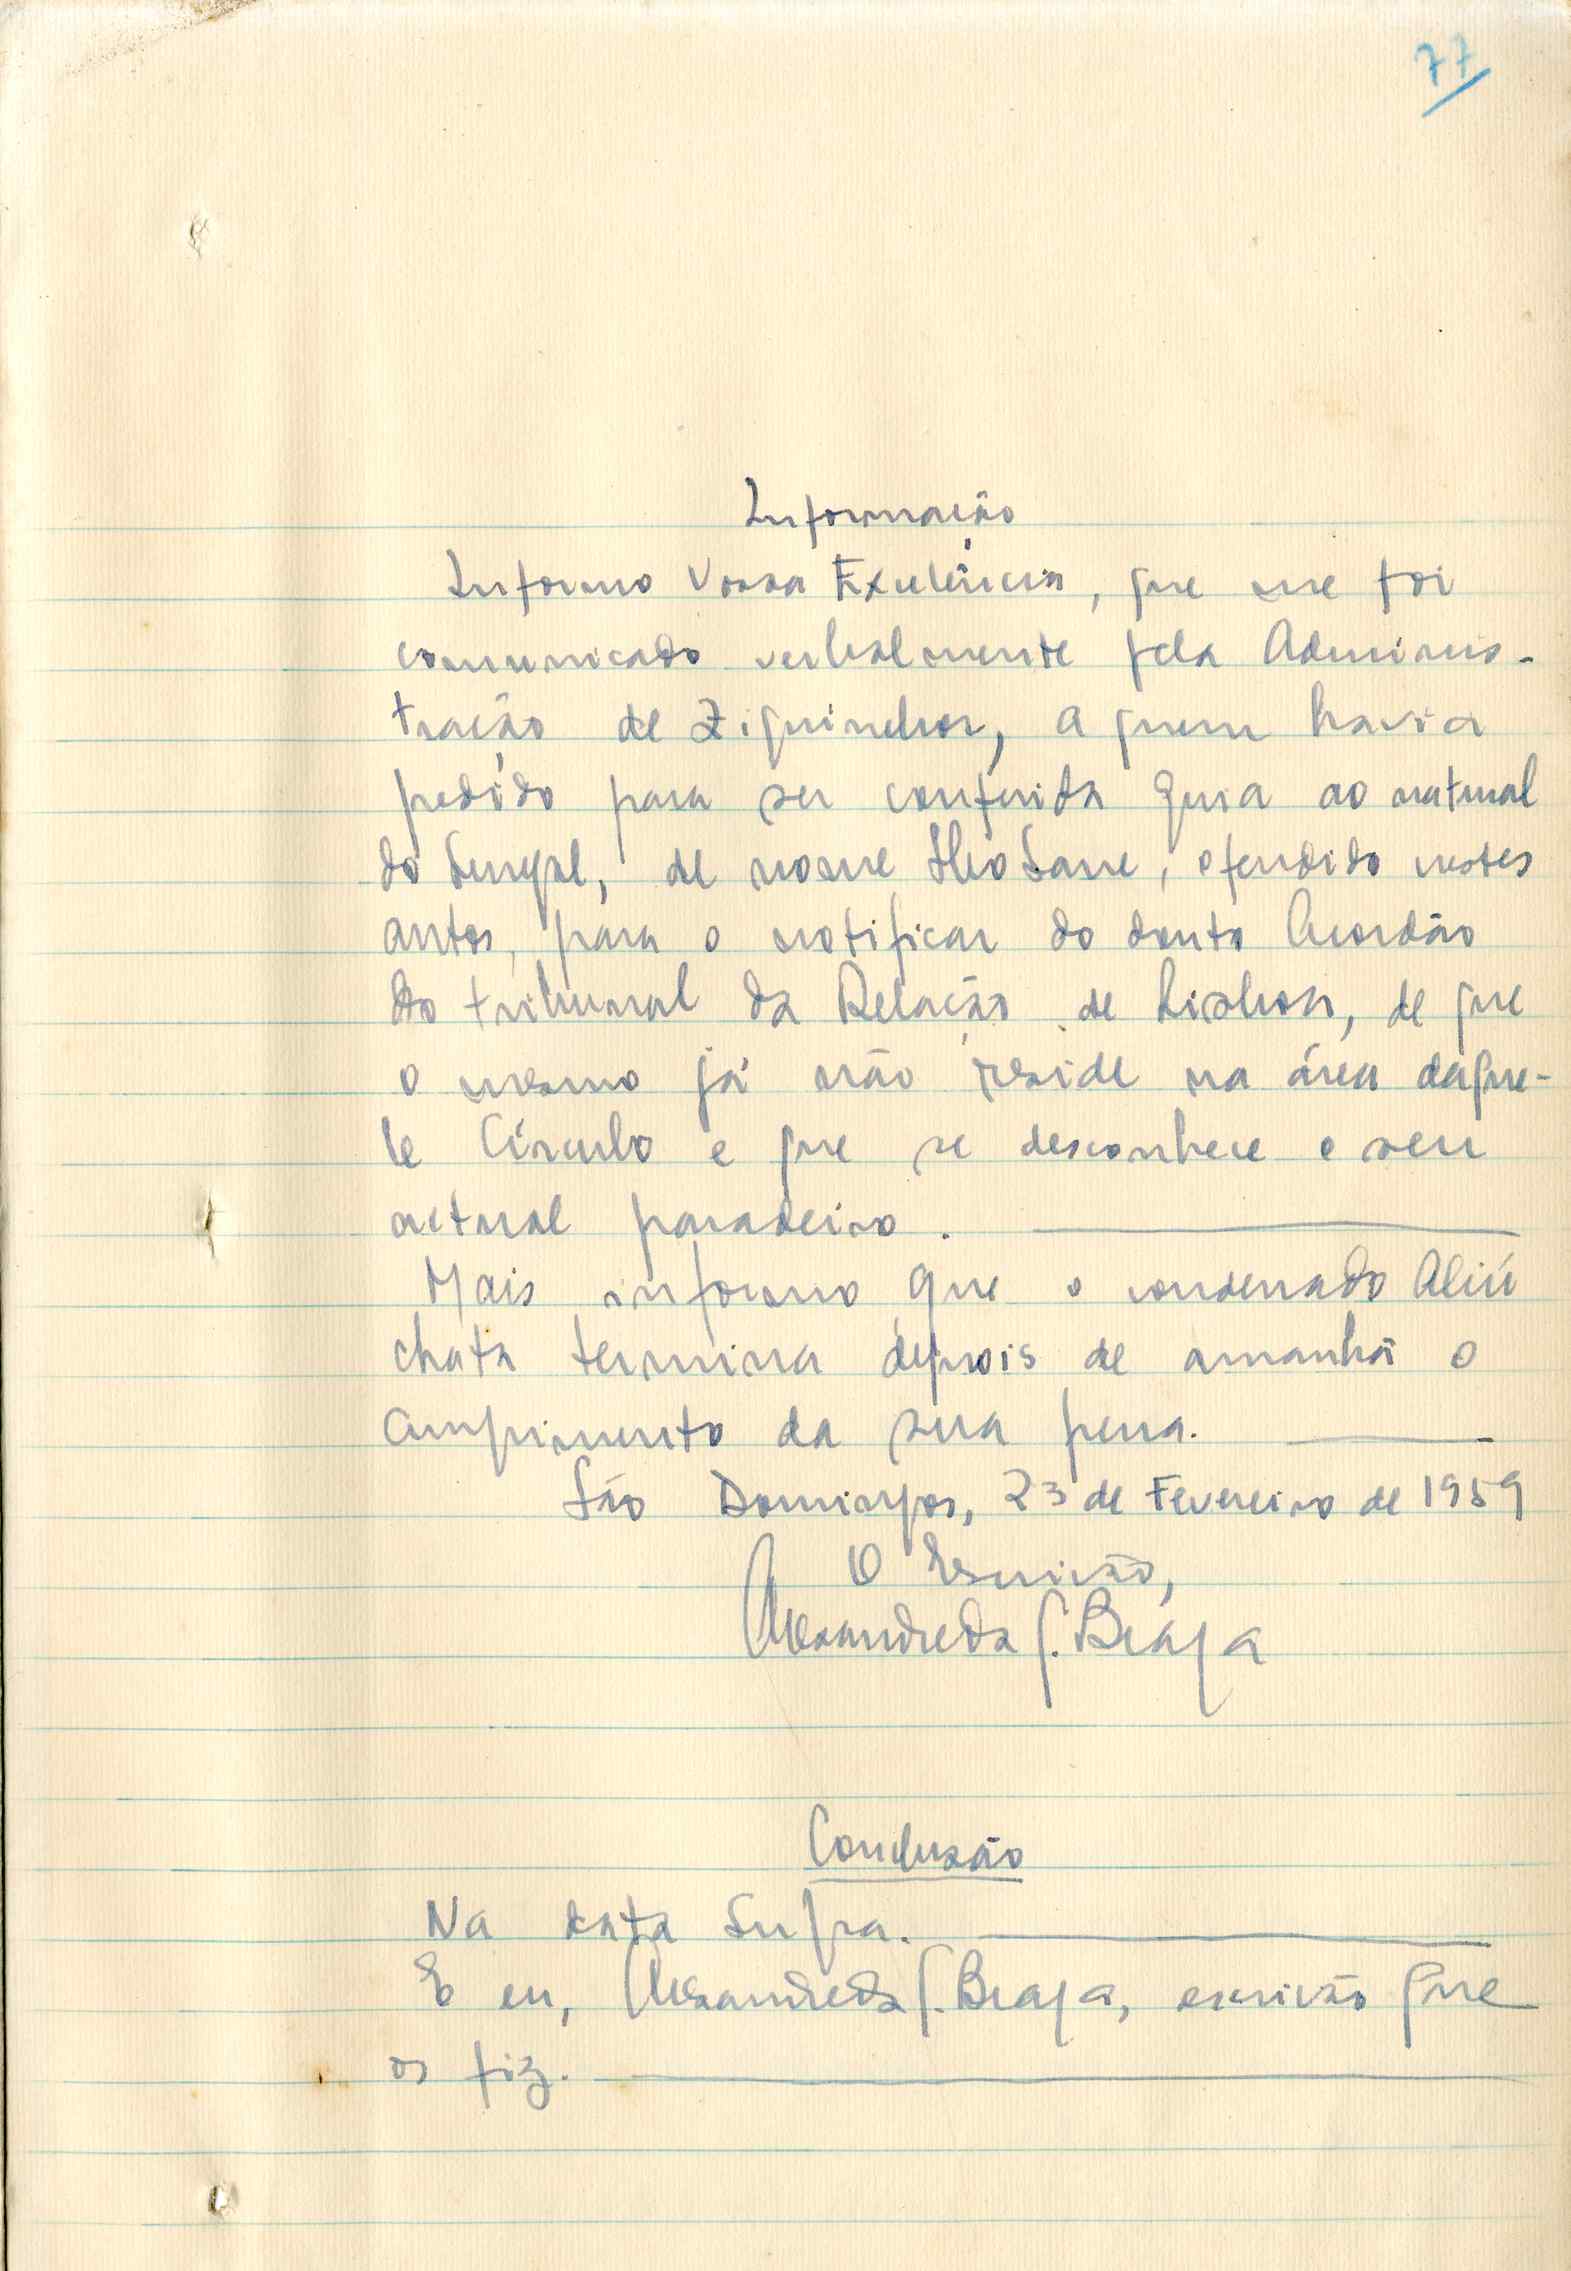 77
Informação
Informo Vossa Excelência, que me foi
comunicado verbalmente pela Adminis-
tração de Ziguinchor, a quem havia
pedido para ser conferida guia ao natural
do Senegal, de nome Sane, ofendido nestes
autos, para o notificar do douto Acordão
do tribunal da Relação de Lisboa, de que
o mesmo já não reside na área daque-
le Círculo e que se desconhece o seu
actual paradeiro.
Mais informo que o condenado Aliú
chata termina depois de amanhã o
cumprimento da sua pena.
São Domingos, 23 de Fevereiro de 1959
O Escrivão,
Alexandre da S. Braga
Conclusão
Na data Supra.
E eu, Alexandre da S. Braga, escrivão que
os fiz.